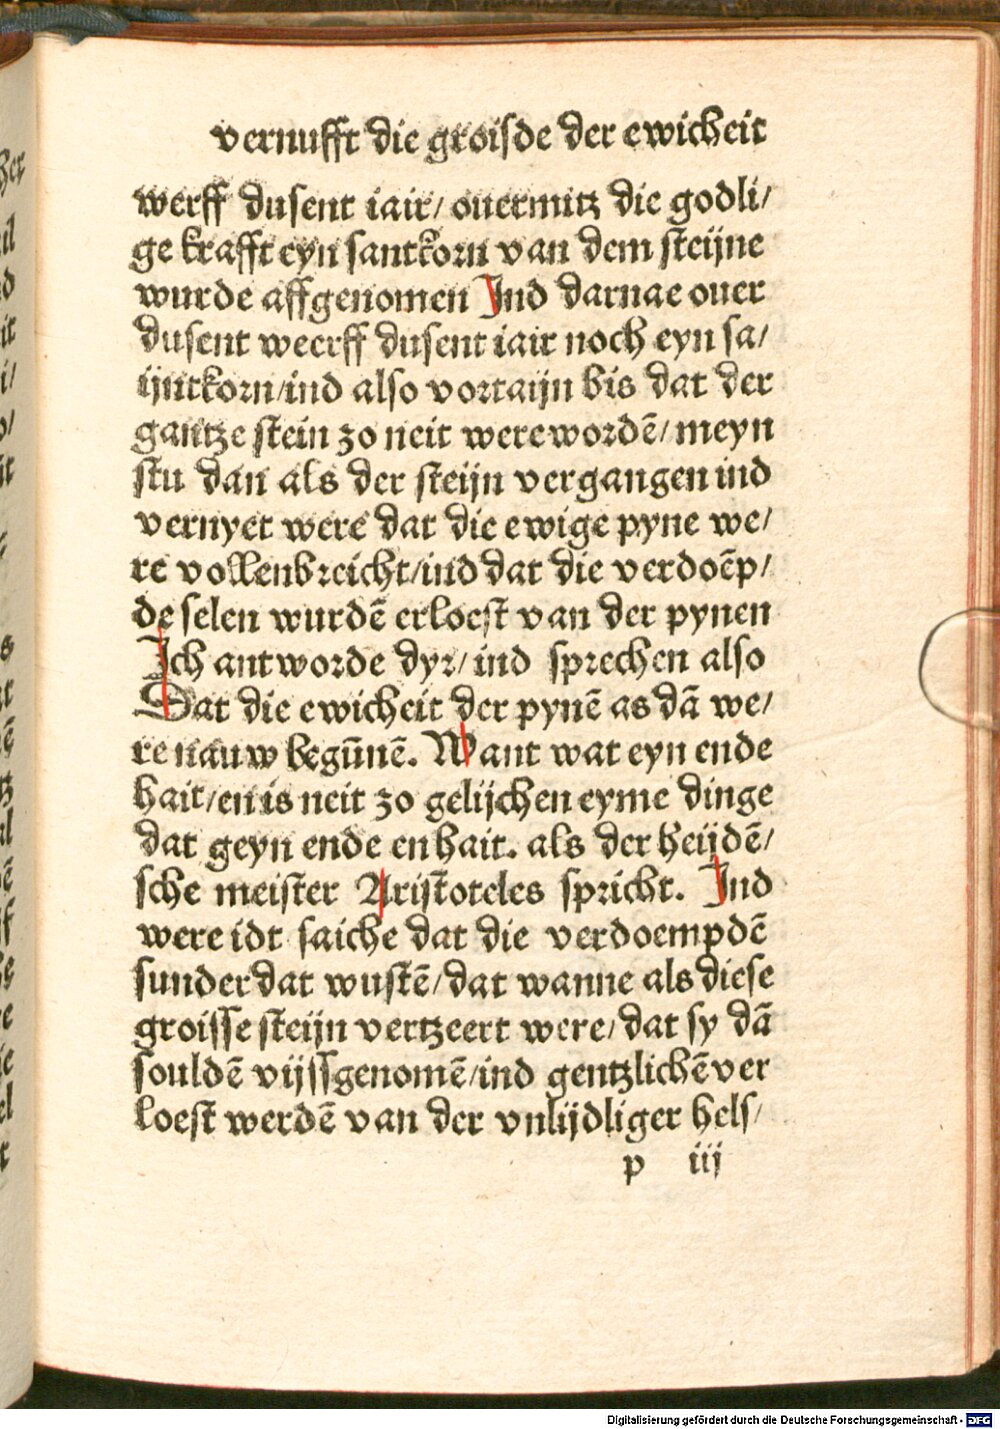 vernufft die groisde der ewicheit
werff dusent iair/ ouermitz die godli/
ge krafft eyn santkorn van dem steijne
wurde affgenomen Ind darnae ouer
dusent weerff dusent iair noch eyn sa/
ijntkorn/ind also vortaijn bis dat der
gantze stein zo neit were wordē/meyn
stu dan als der steijn vergangen ind
vernyet were dat die ewige pyne we/
re vollenbreicht/ind dat die verdoēp/
de selen wurdē erloest van der pynen
Ich antworde dyr/ ind sprechen also
Dat die ewicheit der pynē as dā we/
re nauw begūnē. Want wat eyn ende
hait/en is neit zo gelijchen eyme dinge
dat geyn ende en hait. als der heijdē/
sche meister Aristoteles spricht. Ind
were idt saiche dat die verdoempdē
sunder dat wustē/dat wanne als diese
groisse steijn vertzeert were/dat sy dā
souldē vijssgenomē/ind gentzlichē ver
loest werdē van der vnlijdliger hels/
p iij
Digitalisierung gefördert durch die Deutsche Forschungsgemeinschaft - DFG